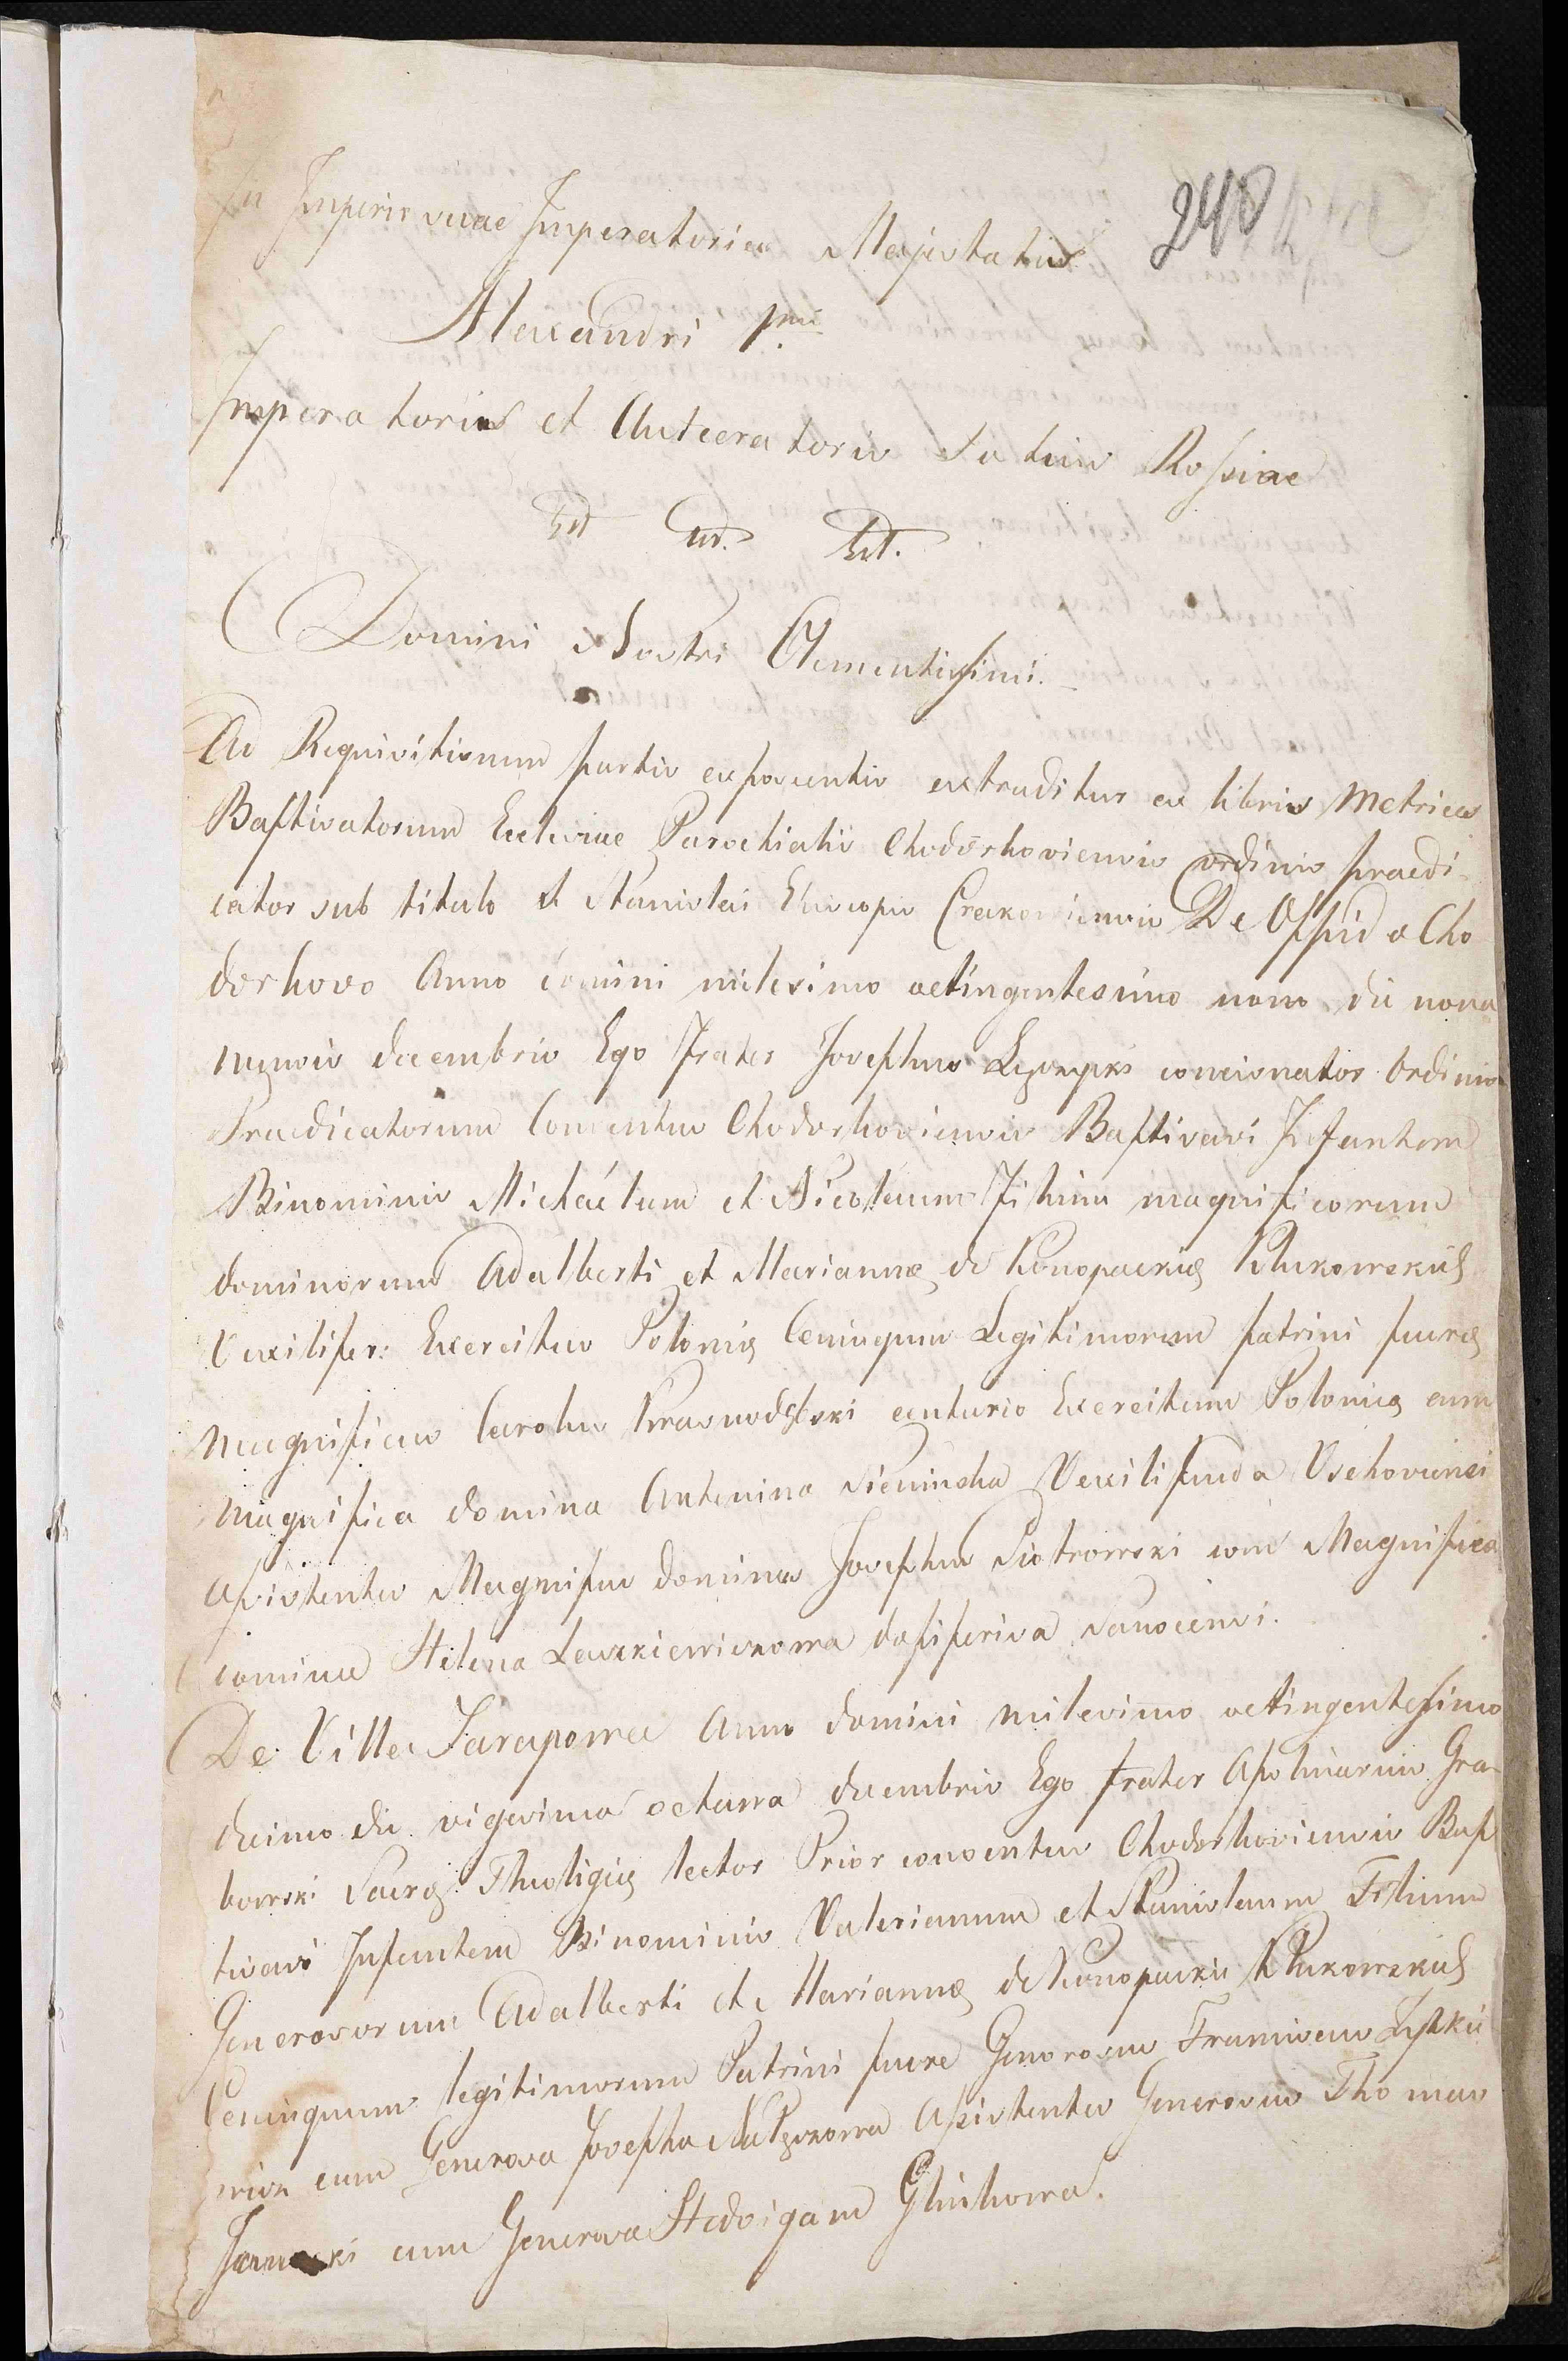 In Imperio suae Imperatoriae Majestatis
240
Alexandri 1mi
Imperatoris et Autceratoris Totius Rossiae
Ect Ect. Ect.
Domini Nostri Clementissimi.
Ad Requisitionum partis exposcentis extraditur ex libris Metrices
Baptisatorum Eclesiae Parochialis Chodorkoviensis ordinis praedi
cator sub titulo S Stanislai Episcopi Cracoviensis De Oppido Cho
dorkovo Anno domini milesimo octingentesimo nono die nona
mensis decembris Ego Frater Josephus concionator Ordinis
Praedicatorum Conventus Chodorkoviensis Baptisavi Infantem
Binominis Michaélem et Nicolaum Filium magnificorum
dominorum Adalberti et Mariannę de Konopackię Klukowskich
Vexilifer: Exercitus Polonię Coniugum Legitimorum patrini fuere
Magnificus Carolus centurio Exercitum Polonię cum
Magnifica domina Antonina Vexilifenda
Assistentes Magnificus dominus Josephus Piotrowski cum Magnifica
domina Helena dapiferisa Sanocensi.
De Villa Tarapowa Anno domini milesimo octingentesimo
decimo die vigesima octawa decembris Ego frater Apolinarius Gra
bowski Sacrę Theoligię lector Prior conventus Chodorkoviensis Bap
tisavi Infantem Binominis Valerianum et Stanislaum Filium
Generosorum Adalberti et Mariannę de Konopackie Klukowskich
Coniugum legitimorum Patrini fuere Generosus Francisous
cum Generosa Josepha Assistentes Generosus Thomas
cum Generosa Hedvigam Glinkowa.